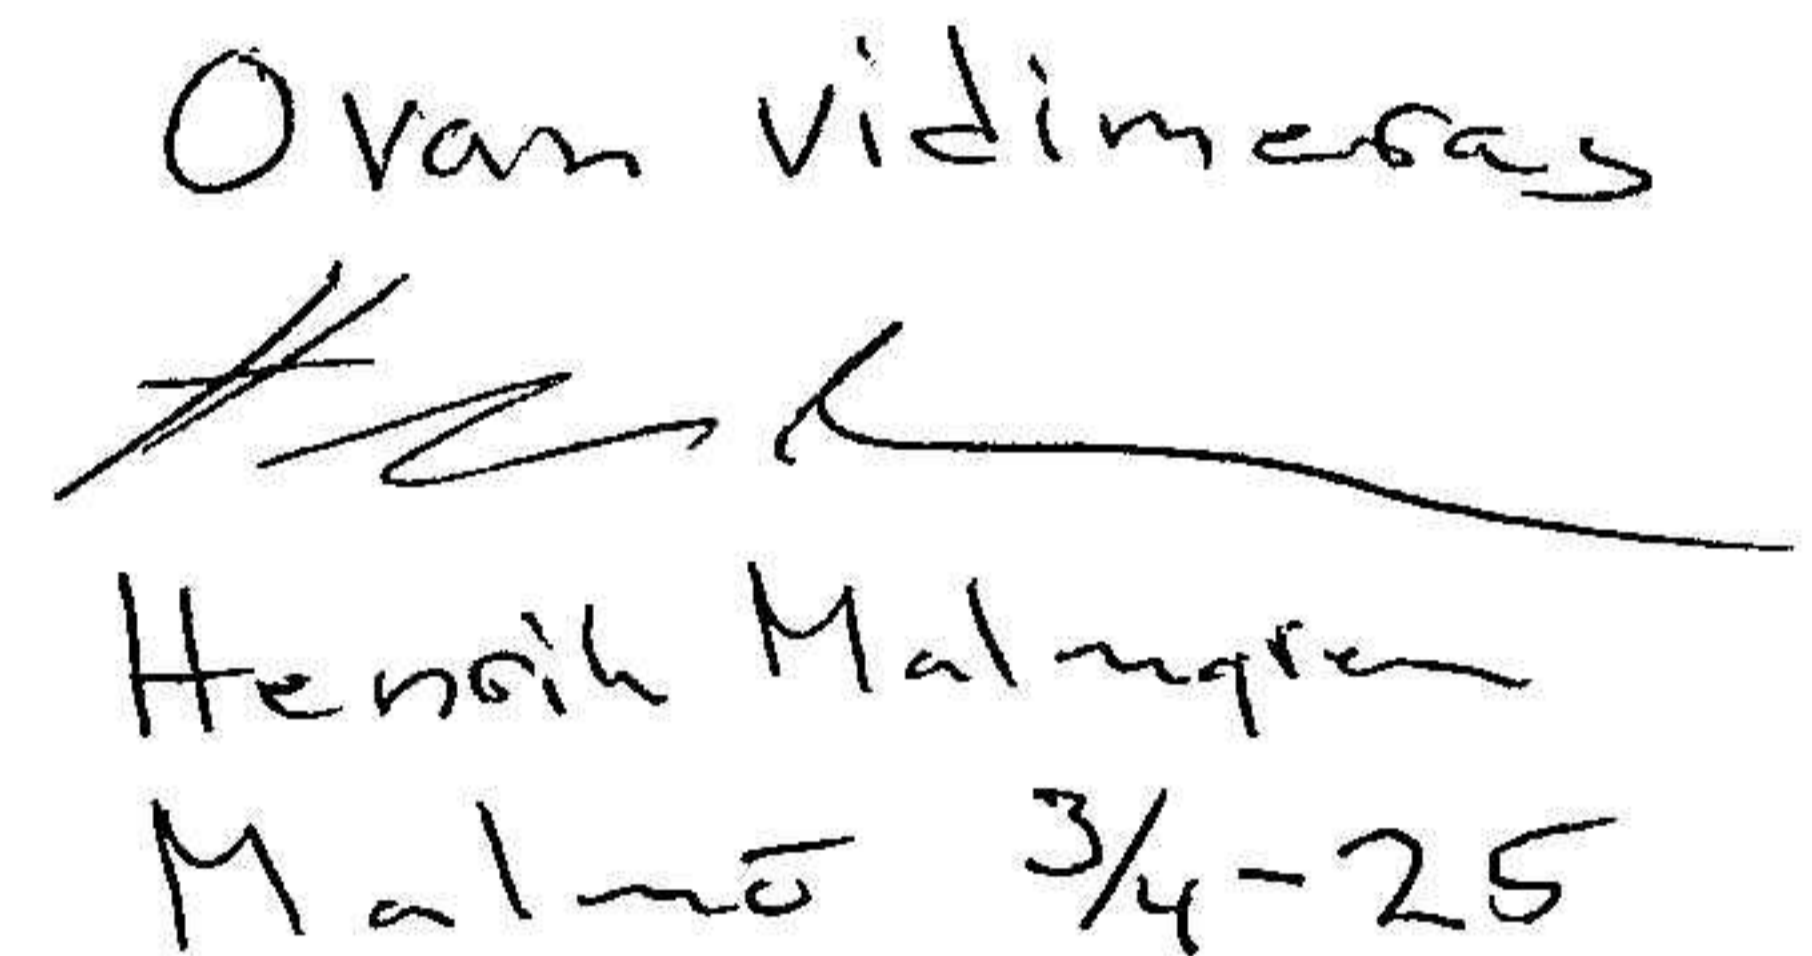 Ovan vidimeras
Henrik Malmgren
Malmö 3/4-25